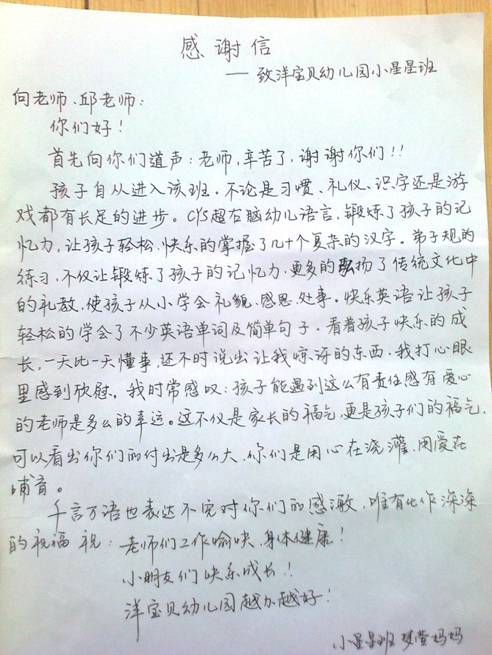 感谢信
——致洋宝贝幼儿园小星星班
向老师、邱老师：
你们好！
首先向你们道声：老师，辛苦了，谢谢你们！！
孩子自从进入该班，不论是习惯、礼仪、识字还是游
戏都有长足的进步。CYS超右脑幼儿语言，锻炼了孩子的记
忆力，让孩子轻松、快乐的掌握了几十个复杂的汉字。弟子规的
练习，不仅让锻炼了孩子的记忆力，更多的弘扬了传统文化中
的礼教，使孩子从小学会礼貌、感恩、处事。快乐英语让孩子
轻松的学会了不少英语单词及简单句子，看着孩子快乐的成
长，一天比一天懂事，还不时说出让我惊讶的东西，我打心眼
里感到欣慰。我时常感叹：孩子能遇到这么有责任感有爱心
的老师是多么的幸运。这不仅是家长的福气，更是孩子们的福气，
可以看出你们的付出是多么大，你们是用心在浇灌，用爱在
哺育。
千言万语也表达不完对你们的感激，唯有化作深深
的祝福 祝：老师们工作愉快，身体健康！
小朋友们快乐成长！
洋宝贝幼儿园越办越好！
小星星班 梦莹妈妈